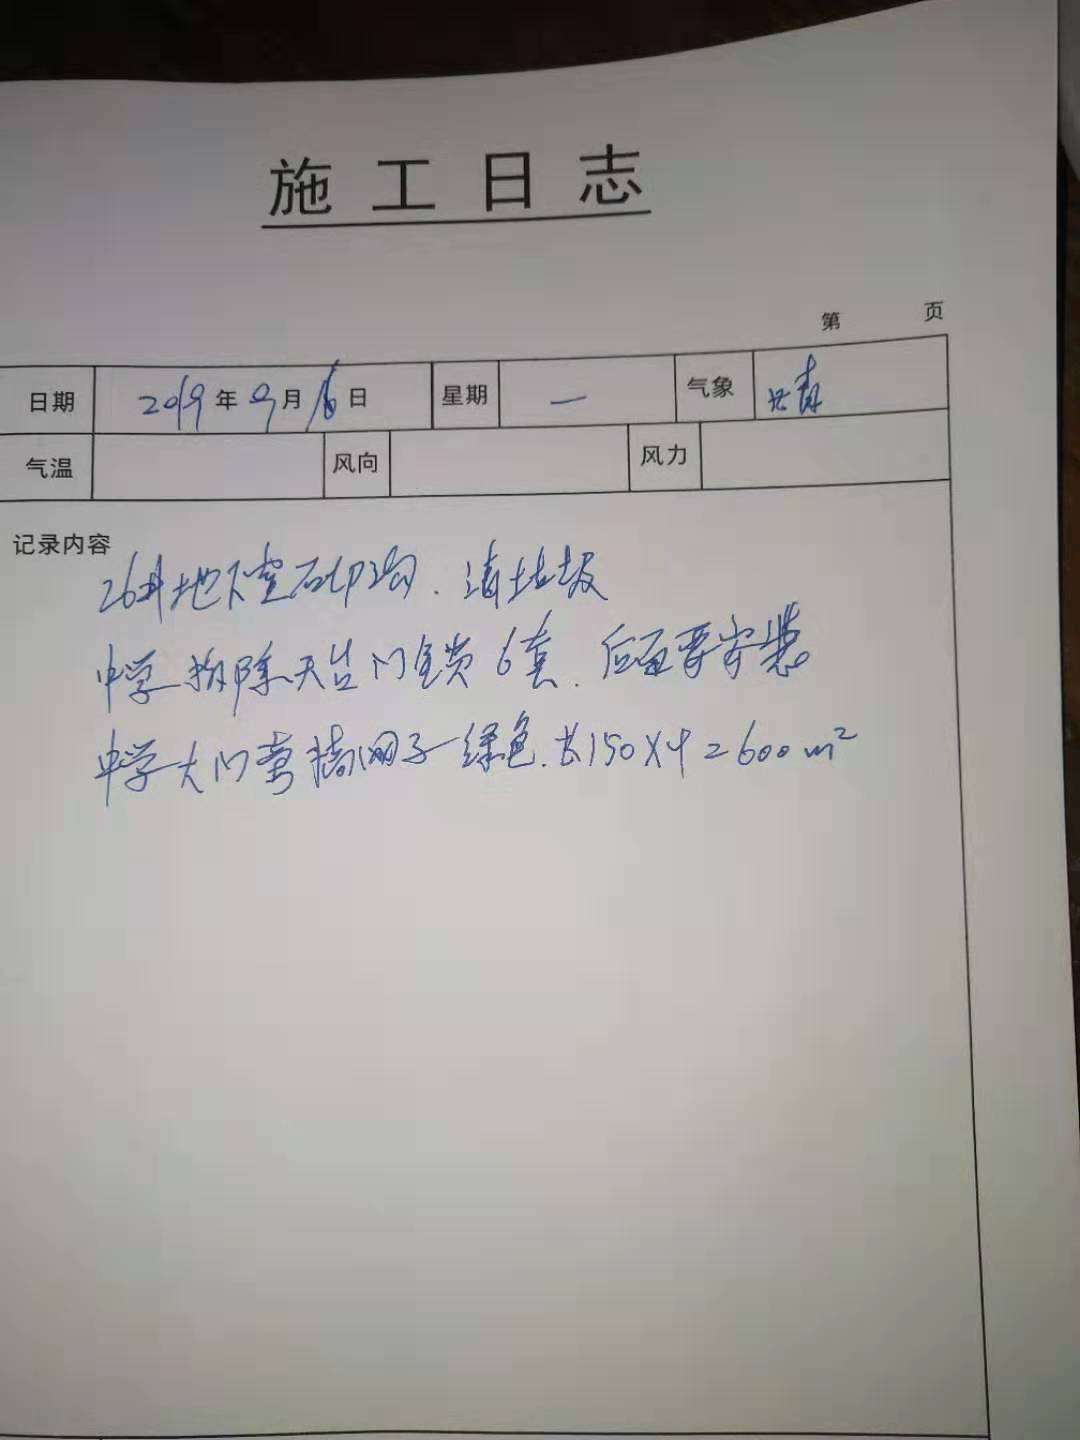 施工日志
第 页
日期 2019年9月16日 星期 一 气象
气温 风向 风力
记录内容
26#地下室砌沟.清垃圾
中学拆除天台门锁6套.后面要安装
中学大门 网子绿色.长150X4=600m²